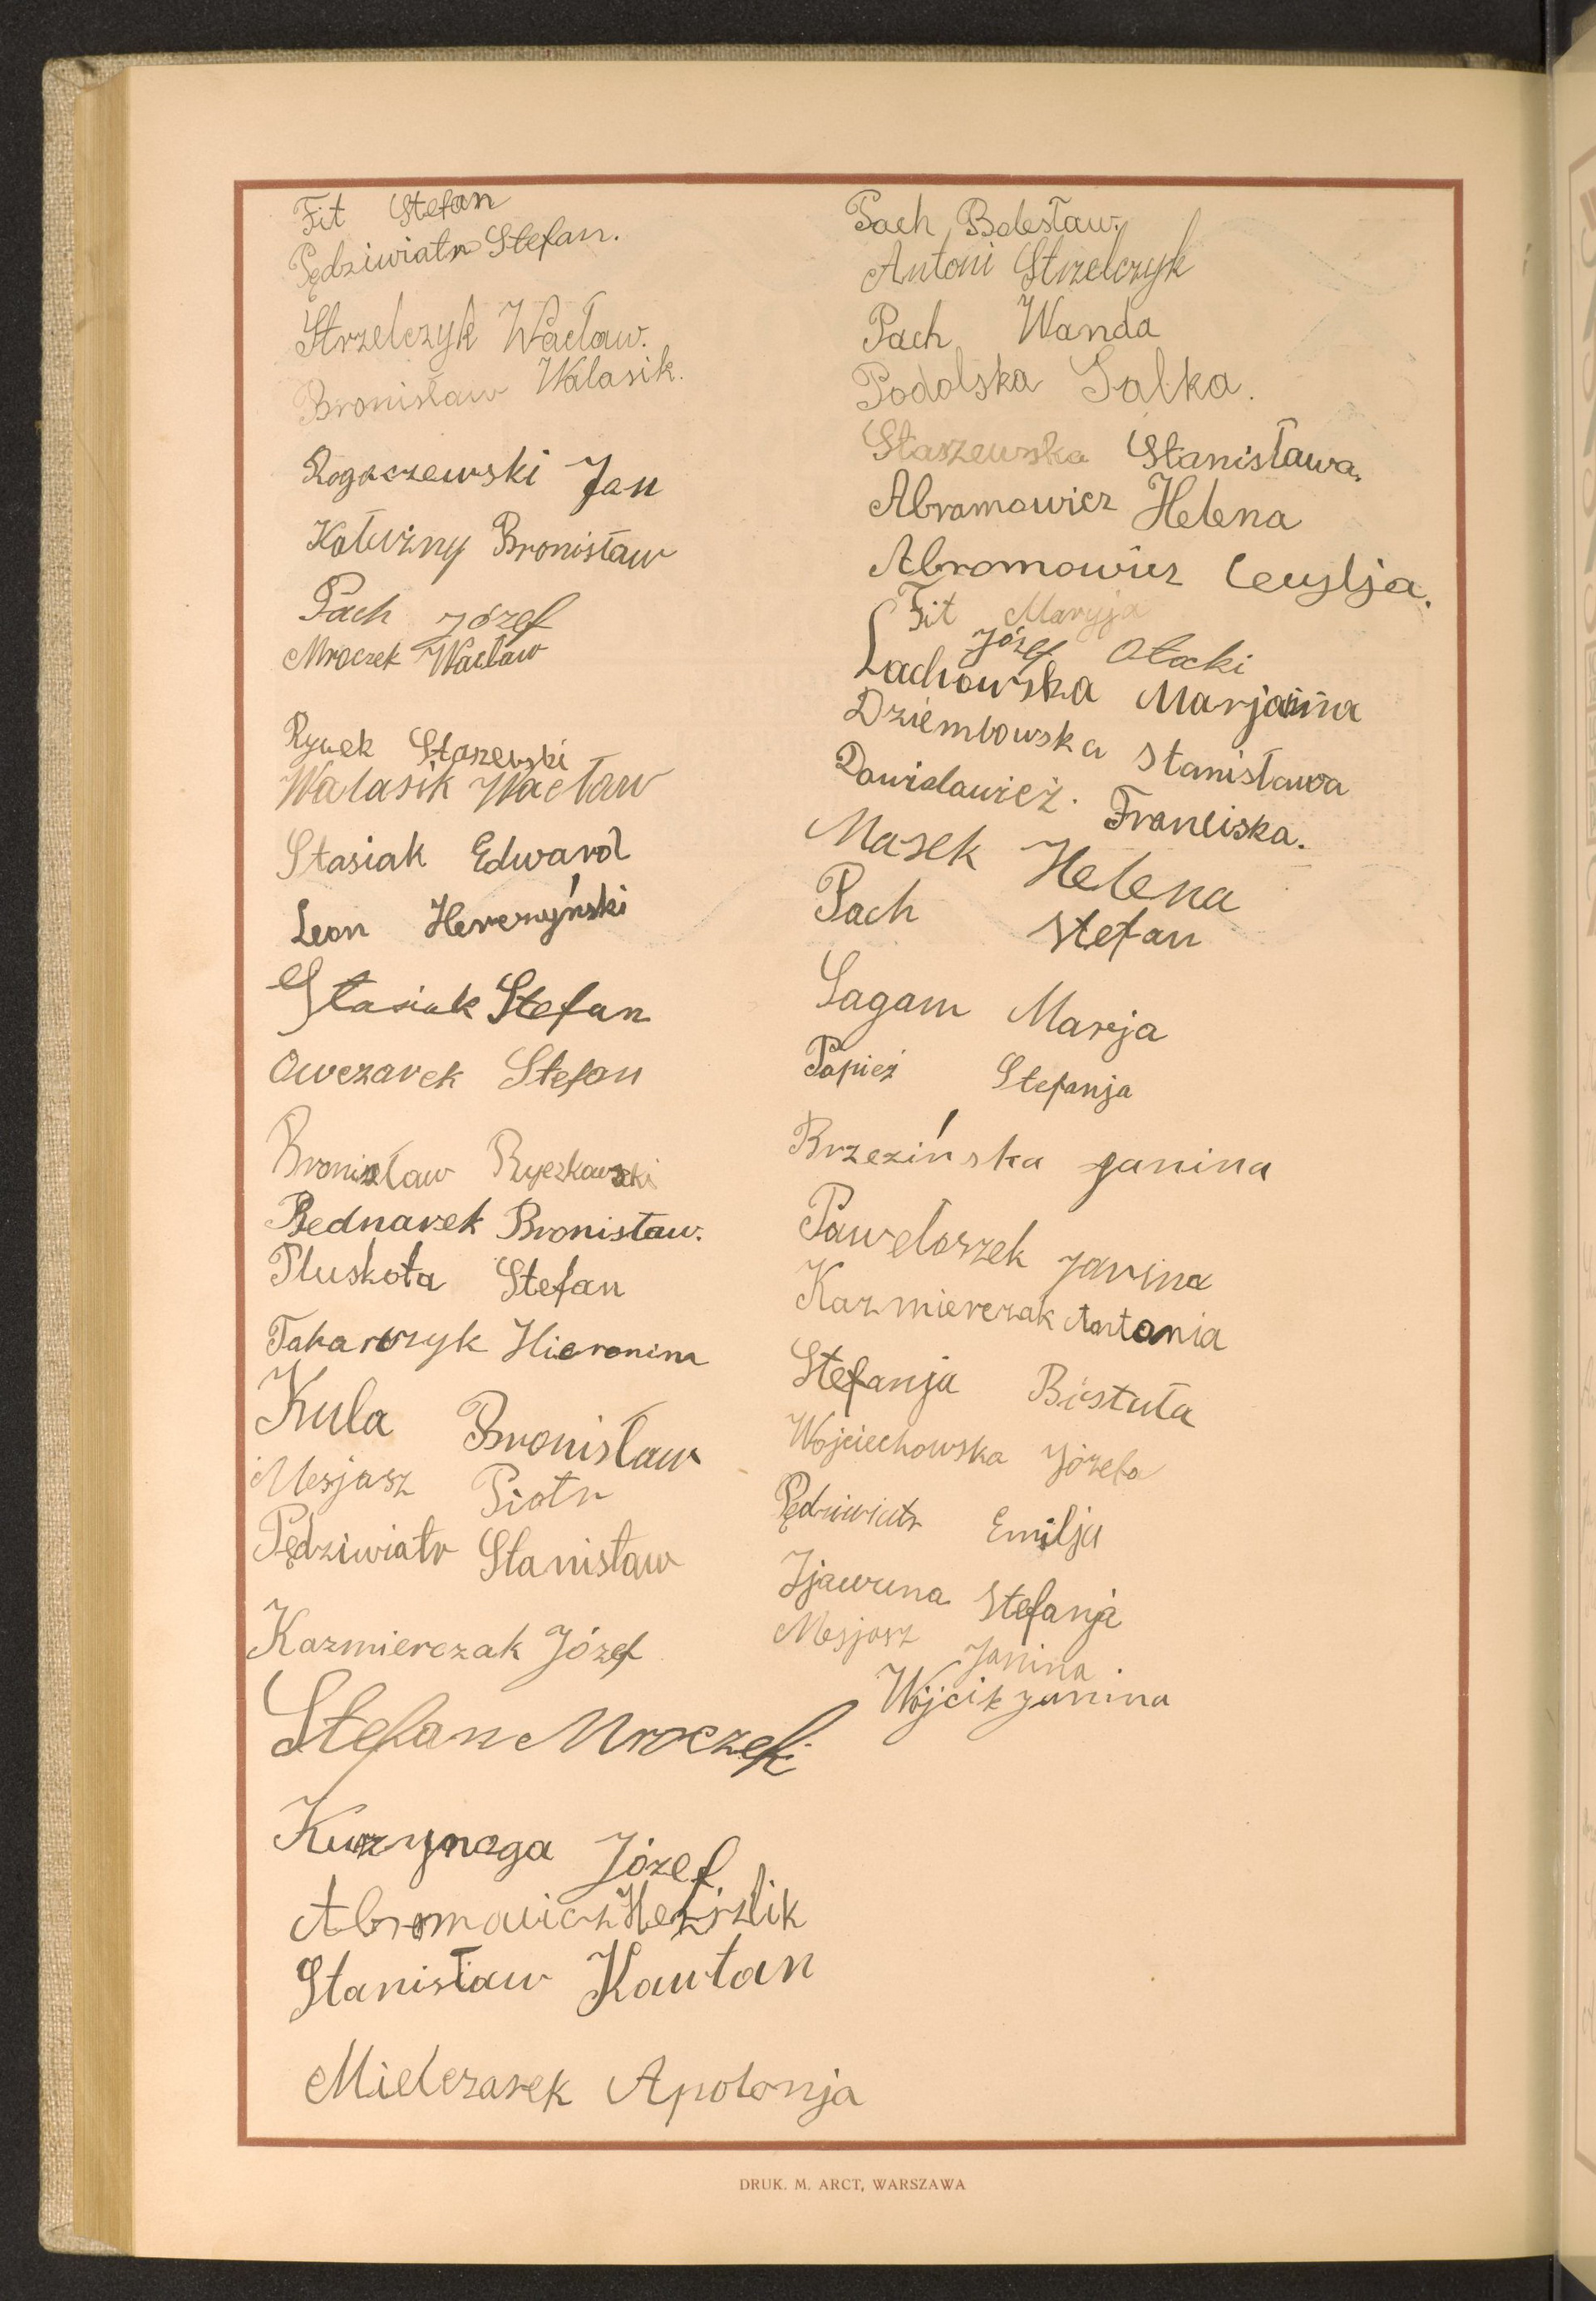 Fit Stefan
Pędziwiatr Stefan.
Strzelczyk Wacław.
Bronisław Walasik.
Rogaczewski Jan
Kałużny Bronisław
Pach Józef
Mroczek Wacław
Rycek Staszewski
Walasik Wacław
Stasiak Edward
Leon Herczyński
Stasiak Stefan
Owczarek Stefan
Bronisław Ryczkowski
Bednarek Bronisław.
Pluskota Stefan
Tokarczyk Hieronim
Kula Bronisław
Mesjasz Piotr
Pędziwiatr Stanisław
Kazmierczak Józef
Stefan Mroczek
Kurzynoga Józef
Abramowicz
Stanisław Kawłan
Mielczarek Apolonja
Pach Bolesław.
Antoni Strzelczyk
Pach Wanda
Podolska Salka.
Staszewska Stanisława.
Abramowicz Helena
Abromowicz Cecylja.
Fit Maryja
Józef Otocki
Lachowska Marjanna
Dziembowska Stanisława
Dawidowicz. Franciska.
Masek Helena
Pach Stefan
Sagam Marja
Papież Stefanja
Brzezińska Janina
Pawełoszek Janina
Kazmierczak Antonia
Stefanja Bistuła
Wojciechowska Józefa
Pędziwiatr Emilja
Zjawiona Stefanja
Mesjasz Janina
Wójcik Janina
DRUK. M. ARCT, WARSZAWA